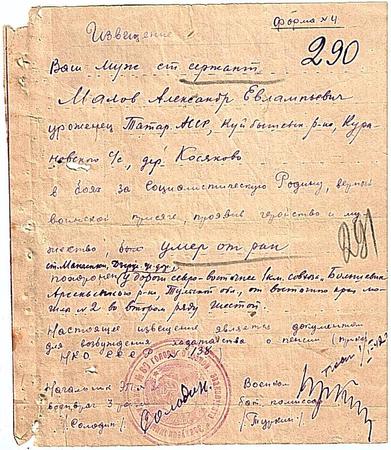 Форма №4
Извещение
290
Ваш муж ст. сержант
Малов Александр Евлампьевич
уроженец Татар. АССР, Куйбышевск. р-на,
с/с, дер. Косяково
в боях за Социалистическую Родину, верный
воинской присяге, проявив геройство и му
жество, был умер от ран
291
похоронен у дороги северо-восточнее 1 км. совхоз
Арсеньевский р-на, Тульской обл. от восточного края мо
гила №2 во втором ряду шестой.
Настоящее извещение является документом
для возбуждения ходатайства о пенсии (приказ
НКО СССР № 138
Начальник
Военком
военврач 3 ранга
бат. комиссар
Солодин
/Солодин/